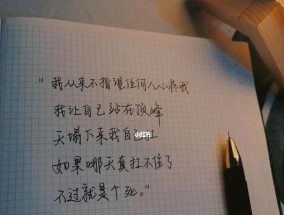 “我从来不指望任何人心疼我
我让自己站在顶峰
天塌下来我自己扛
如果哪天真扛不住了
不过就是个死。”
小红书